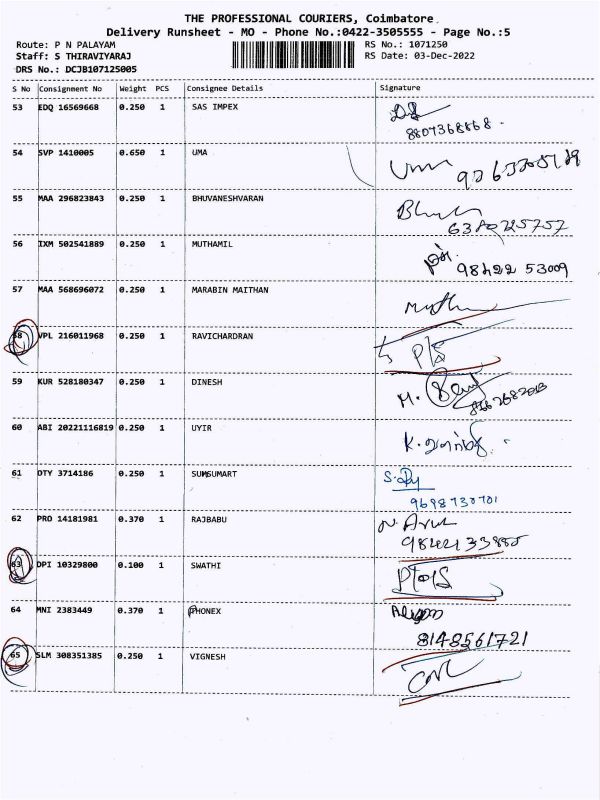 THE PROFESSIONAL COURIERS, Coimbatore
Delivery Runsheet - MO - Phone No.:0422-3505555 - Page No.:5
Route: P N PALAYAM RS No.: 1071250
Staff: S THIRAVIYARAJ RS Date: 03-Dec-2022
DRS No.: DCJB107125005
S No Consignment No Weight PCS Consignee Details Signature
53 EDQ 16569668 0.250 1 SAS IMPEX
8807368868
54 SVP 1410005 0.650 1 UMA
Uma
55 MAA 296823843 0.250 1 BHUVANESHVARAN
56 IXM 502541889 0.250 1 MUTHAMIL
98422 53009
57 MAA 568696072 0.250 1 MARABIN MAITHAN
58 VPL 216011968 0.250 1 RAVICHARDRAN
59 KUR 528180347 0.250 1 DINESH
M.
60 ABI 20221116819 0.250 1 UYIR
K.
61 DTY 3714186 0.250 1 SUMSUMART
9698730701
62 PRO 14181981 0.370 1 RAJBABU
63 DPI 10329800 0.100 1 SWATHI
64 MNI 2383449 0.370 1 PHONEX
8148561721
65 SLM 308351385 0.250 1 VIGNESH